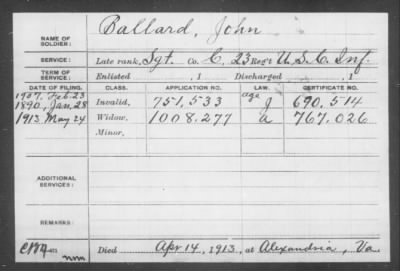 NAME OF SOLDIER: Ballard, John
SERVICE: Late rank, Sgt. Co. C, 23 Reg't U.S.C. Inf.
TERM OF SERVICE: Enlisted , 1 Discharged , 1
DATE OF FILING. CLASS. APPLICATION NO. LAW. CERTIFICATE NO.
1907, Feb. 23 age
1890, Jan. 28 Invalid, 751,533 J 690,514
1913 May 24 Widow, 1008,277 a 767,026
Minor,
ADDITIONAL SERVICES:
REMARKS:
Died Apr 14, 1913, at Alexandria, Va.